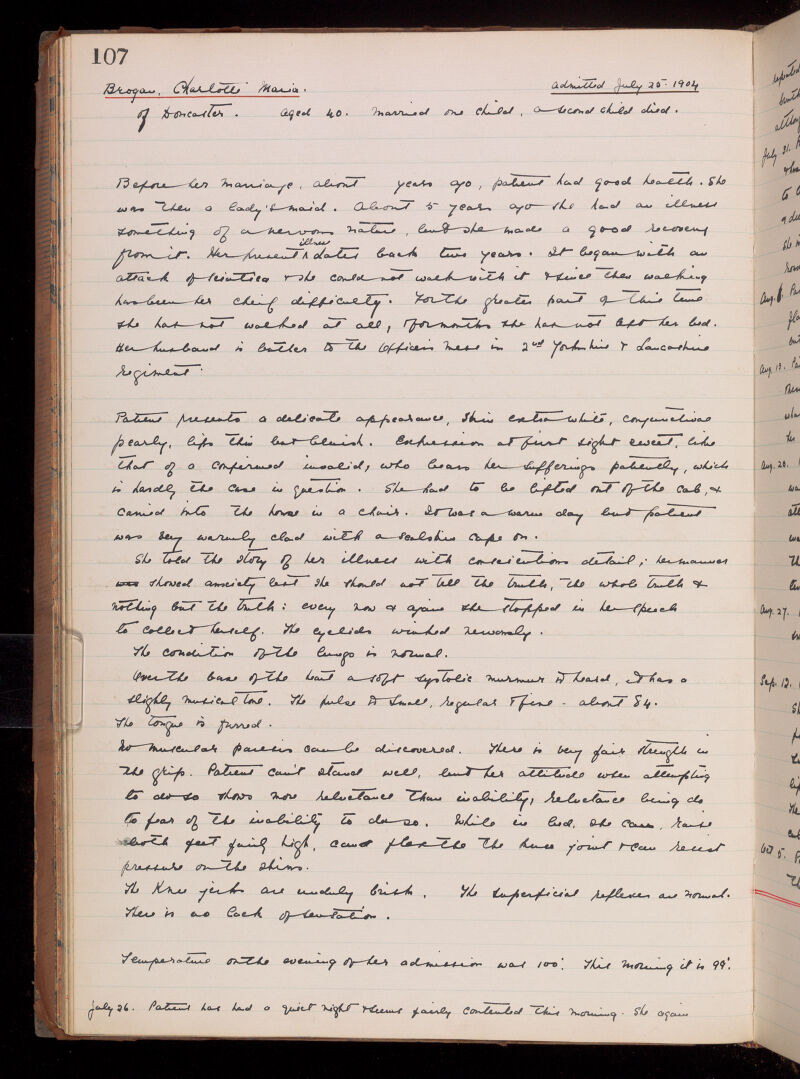 107
Brogan, Charlotte Maria. Admitted July 25. 1904
of Doncaster. Aged 40. Married one child, a second child died.
Before her marriage, about years ago, patient had good health. She
was then a lady's maid. About 5 years ago she had an illness
something of a nervous nature, but she made a good recovery
from it. Her present illness dates back two years. It began with an
attack of sciatica & she could not walk with it & since then walking
has been her cheif difficulty. For the greater part of this time
she has not walked at all, & for months she has not left her bed.
Her husband is butler to the Officers mess in 2nd Yorkshire & Lancashire
Regiment.
Patient presents a delicate appearance, skin extra white, conjunctivae
pearly, lips thin but bluish. Expression at first sight sweet, like
that of a confirmed invalid, who bears her sufferings patiently, which
is hardly the case in question. She had to be lifted out of the cab, &
carried into the house in a chair. It was a warm day but patient
was very warmly clad with a sealskin cape on.
She told the story of her illness with conscientious detail; her manner
showed anxiety lest she should not tell the truth, the whole truth &
nothing but the truth: every now & again she stopped in her speech
to collect herself. The eyelids winked nervously.
The condition of the lungs is normal.
Over the base of the heart a soft systolic murmur is heard, it has a
slighly musical tone. The pulse is small, regular & fine - about 84.
The tongue is furred.
No muscular paresis can be discovered. There is very fair strength in
the grip. Patient can't stand well, but her attitude when attempting
to do so shows more reluctance than inability, reluctance being do
to fear of the inability to do so. While in bed, she can raise
both feet fairly high, can flex the knee joint & can resist
pressure on the shins.
The Knee jerks are unduly brisk. The superficial reflexes are normal.
There is no lack of sensation.
Temperature on the evening of her admission was 100°. This morning it is 99°.
July 26. Patient has had a quiet night & seems fairly contented this morning. She again
July 31.
Aug. 13.
Aug. 20.
Aug. 27.
Sep. 12.
Oct 5.